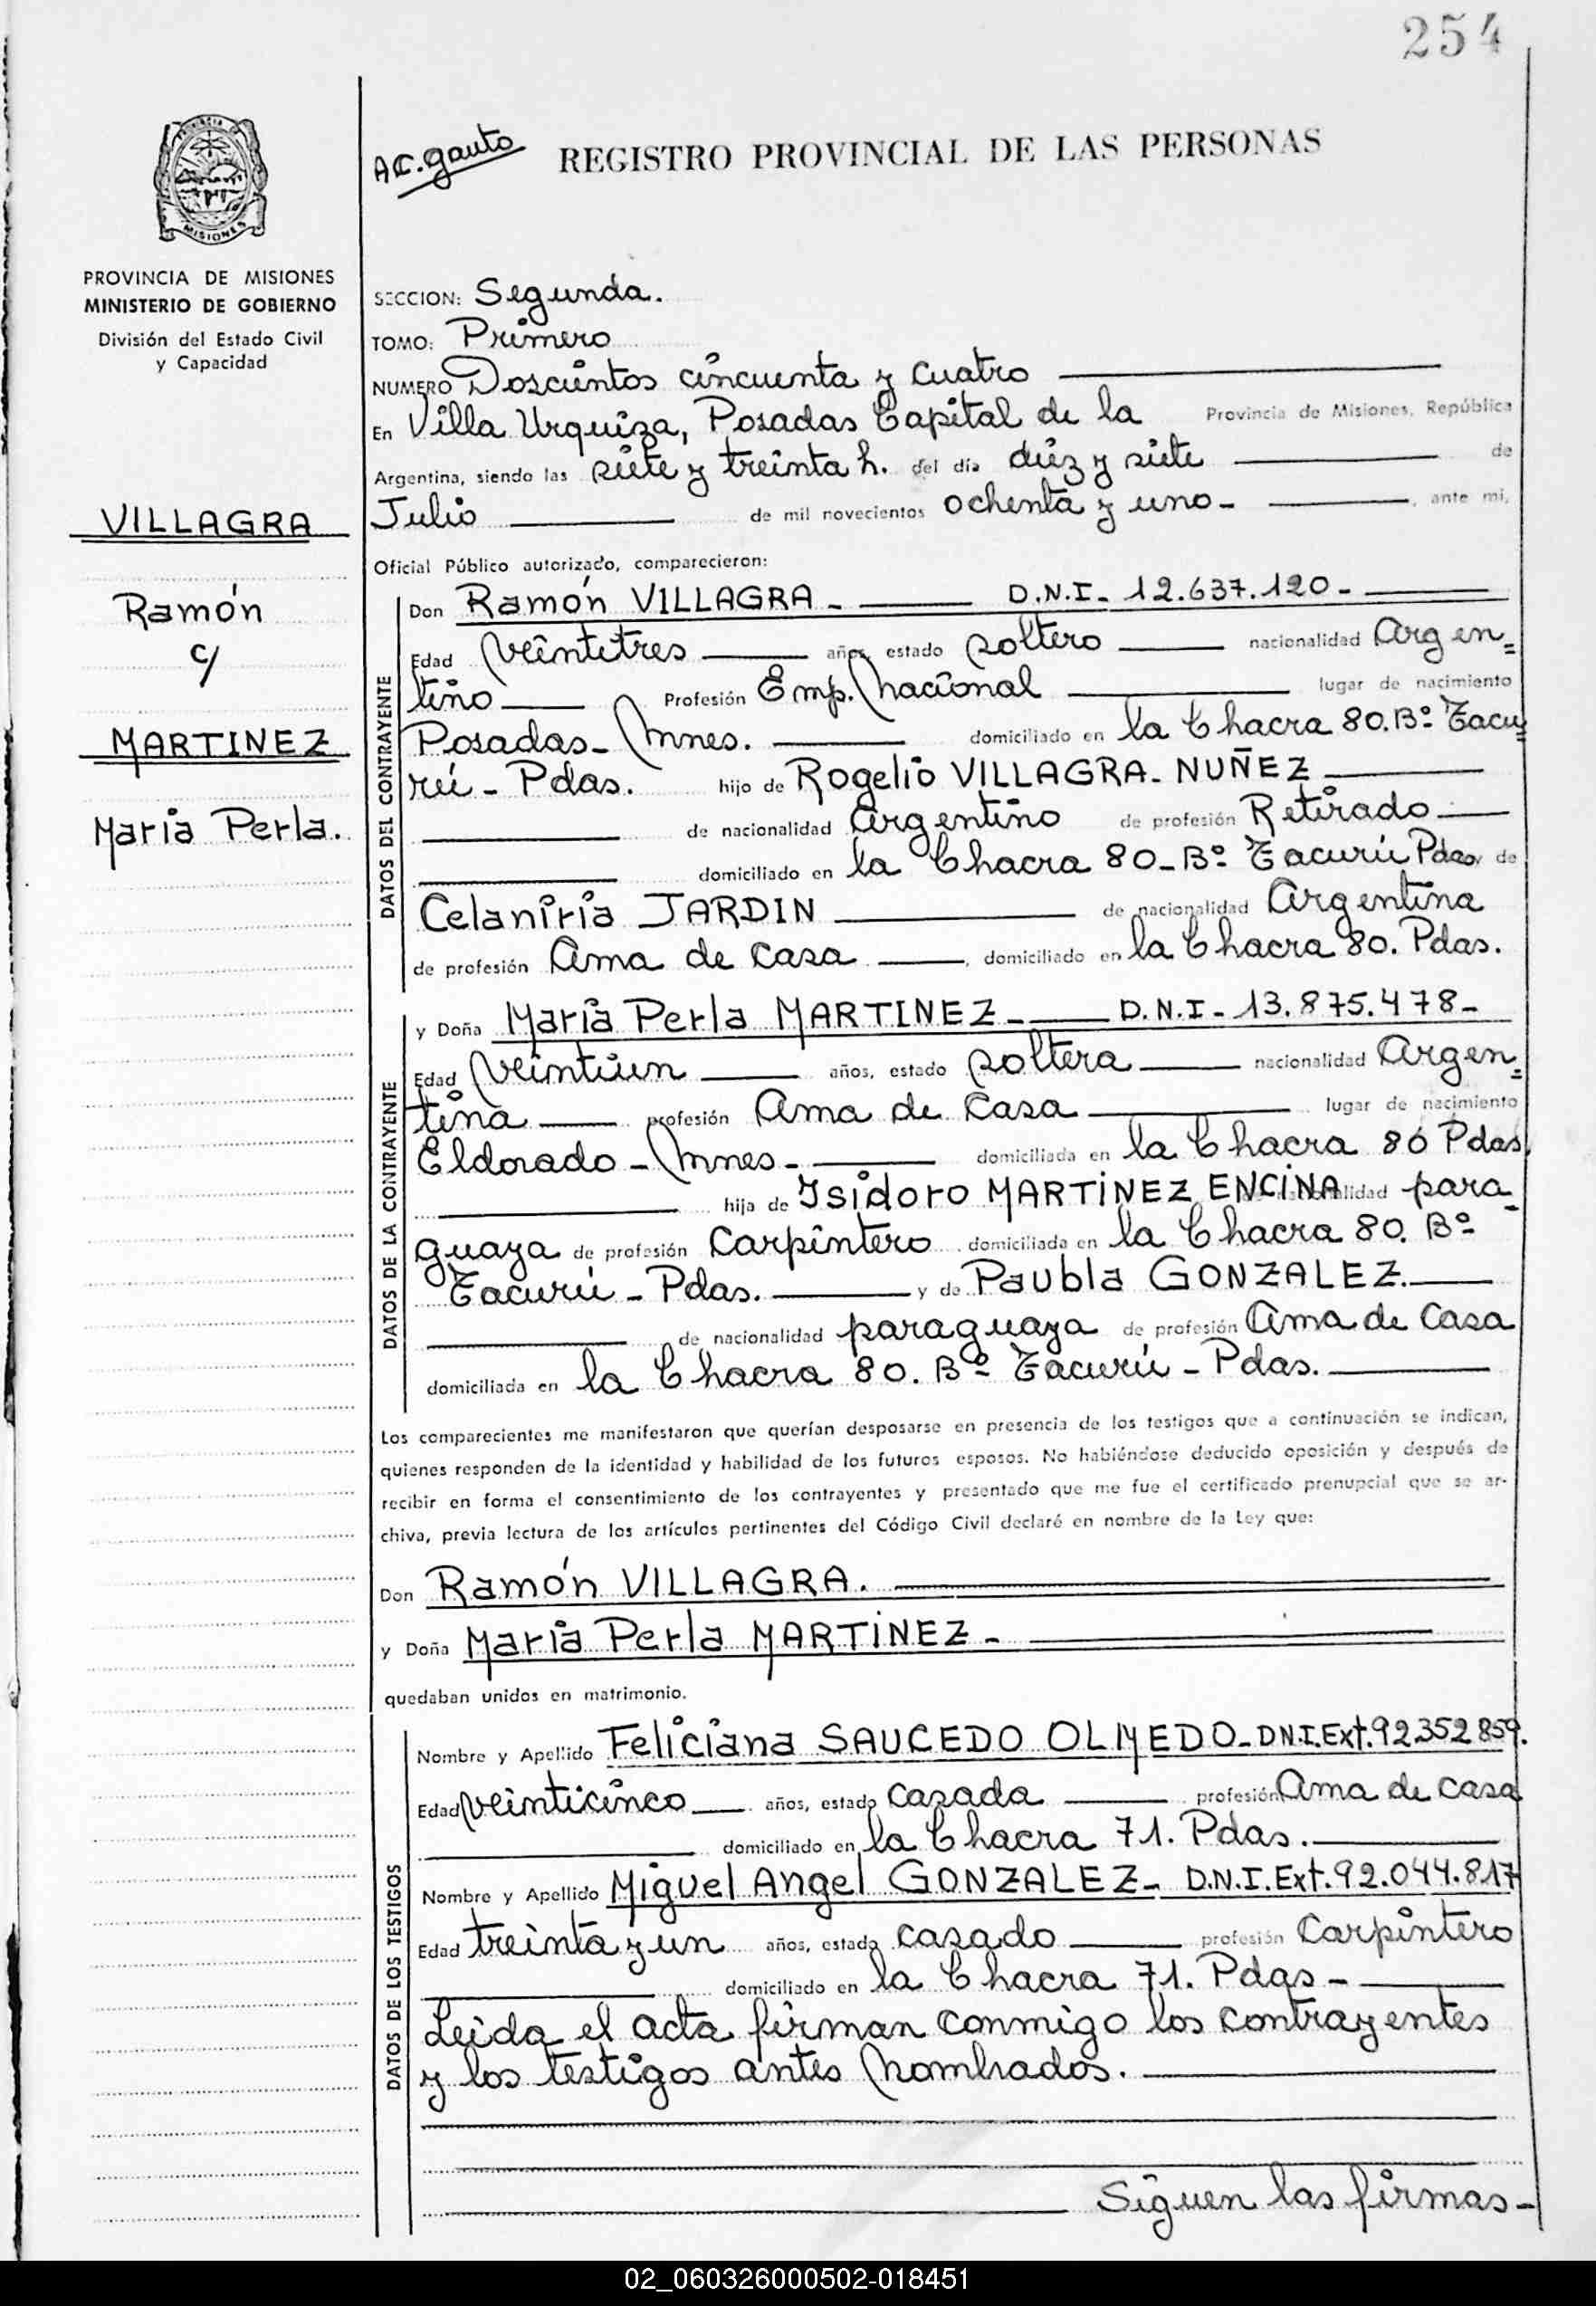 254
PROVINCIA DE
MISIONES
PROVINCIA DE MISIONES
MINISTERIO DE GOBIERNO
División del Estado Civil
y Capacidad
VILLAGRA
Ramón
c/
MARTINEZ
Maria Perla.
AC. Gauto
REGISTRO PROVINCIAL DE LAS PERSONAS
SECCION: Segunda.
TOMO: Primero
NUMERO Doscientos cincuenta y cuatro
En Villa Urquiza, Posadas Capital de la Provincia de Misiones, República
Argentina, siendo las siete y treinta h. del día diez y siete de
Julio de mil novecientos ochenta y uno- , ante mi,
Oficial Público autorizado, comparecieron:
DATOS DEL CONTRAYENTE
Don Ramón VILLAGRA - D.N.I- 12.637.120-
Edad veintitres años, estado soltero nacionalidad Argen=
tino Profesión Emp. nacional lugar de nacimiento
Posadas- Mnes. domiciliado en la Chacra 80.Bº Tacu
rú - Pdas. hijo de Rogelio VILLAGRA- NUÑEZ
de nacionalidad Argentino de profesión Retirado
domiciliado en la Chacra 80-Bº Tacurú Pdas y de
Celaniria JARDIN de nacionalidad Argentina
de profesión Ama de Casa , domiciliado en la Chacra 80. Pdas.
DATOS DE LA CONTRAYENTE
y Doña Maria Perla MARTINEZ- D.N.I- 13.875.478-
Edad veintiún años, estado soltera nacionalidad Argen=
tina profesión Ama de Casa lugar de nacimiento
Eldorado - Mnes- domiciliada en la Chacra 80 Pdas,
hija de Isidoro MARTINEZ ENCINA nacionalidad para-
guaya de profesión Carpintero domiciliada en la Chacra 80. Bº
Tacurú - Pdas. y de Paubla GONZALEZ.
de nacionalidad paraguaya de profesión Ama de Casa
domiciliada en la Chacra 80. Bº Tacurú - Pdas.
Los comparecientes me manifestaron que querían desposarse en presencia de los testigos que a continuación se indican,
quienes responden de la identidad y habilidad de los futuros esposos. No habiéndose deducido oposición y después de
recibir en forma el consentimiento de los contrayentes y presentado que me fue el certificado prenupcial que se ar-
chiva, previa lectura de los artículos pertinentes del Código Civil declaré en nombre de la Ley que:
Don Ramón VILLAGRA.
y Doña Maria Perla MARTINEZ -
quedaban unidos en matrimonio.
DATOS DE LOS TESTIGOS
Nombre y Apellido Feliciana SAUCEDO OLMEDO- DN.I.Ext.92.352.859.
Edad veinticinco años, estado casada profesión Ama de casa
domiciliado en la Chacra 71. Pdas.
Nombre y Apellido Miguel Angel GONZALEZ- D.N.I.Ext.92.044.817
Edad treinta y un años, estado casado profesión Carpintero
domiciliado en la Chacra 71. Pdas -
Leida el acta firman conmigo los contrayentes
y los testigos antes nombrados.
Siguen las firmas-
02_060326000502-018451